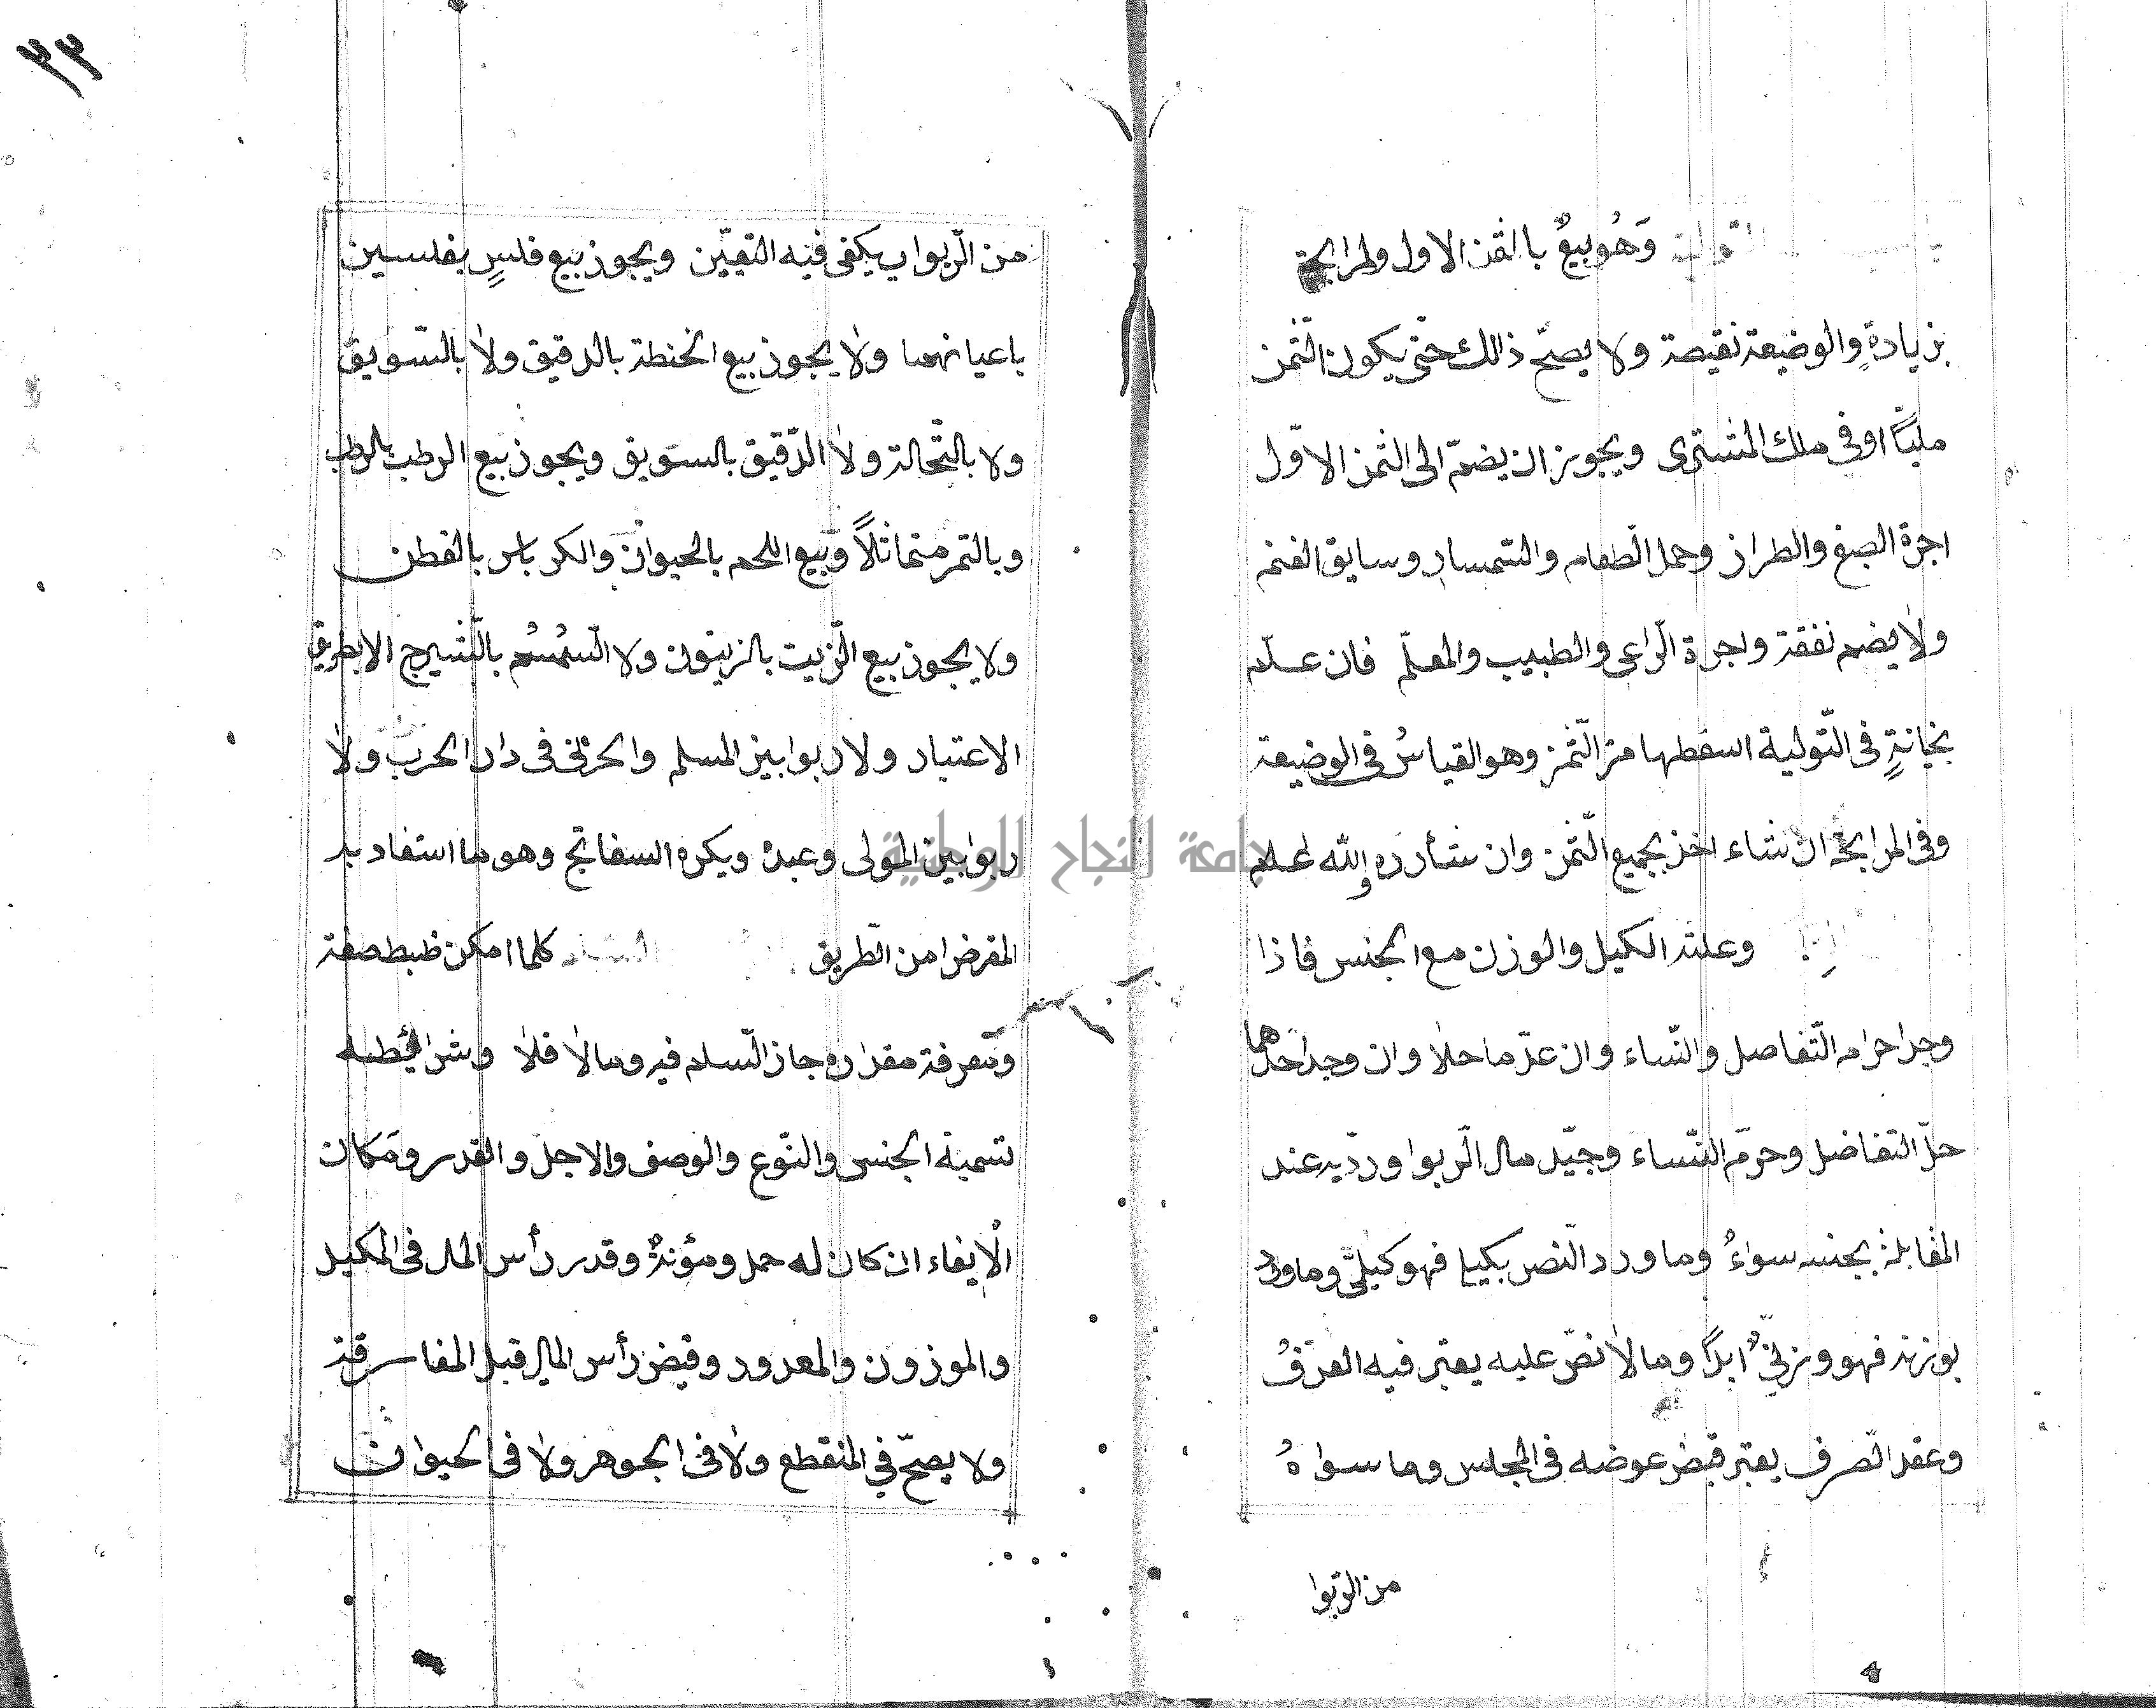 التولية وَهُو بيعٌ بالثمن الاول والمرابحة
بزيادةٍ والوضيعة نقيصة ولا يصحّ ذلك حتّى يكون الثّمن
مليّاً اوفى ملك المشترى ويجوز ان يضمّ الى الثمن الاوّل
اجرة الصبغ والطراز وحمل الطّعام والسّمسار وسايق الغنم
ولا يضم نفقة واجرة الرّاعى والطبيب والمعلّم فان علم
بخيانةٍ فى التّولية اسقطها من الثّمن وهو القياسُ فى الوضيعة
وفى المرابحة ان شاء اخذ بجميع الثّمن وان شأ رده والله اعلم
وعلته الكيل والوزن مع الجنس فاذا
وجدا حرام التّفاصل والنّساء وان عدّ ماحلا وان وجد احدهما
حلّ التفاضل وحرّم النّساء وجيّد مال الرّبوا ورديه عند
المقابلة بجنسه سواءٌ وما ورد النّص بكيله فهو كيلىّ وما ورد
بوزنه فهو وزنىّ ابداً وما لا نصّ عليه يعتبر فيه العرفُ
وعقد الصّرف يعتبر قبض عوضه فى المجلس وما سواهُ
من الرّبوا
٣٣
من الرّبواب يكفى فيه التعيّين ويجوز بيع فلسٍ بفلسين
باعيانهما ولا يجوز بيع الحنطة بالدقيق ولا بالسّويق
ولا بالنّخالة ولا الدّقيق بالسويق ويجوز بيع الرطب بالرطب
وبالتمر متماثلاً وبيع اللحم بالحيوان والكرباس بالقطن
ولا يجوز بيع الزّيت بالزيتون ولا السّمسُم بالشّيرج الا بطريق
الاعتبار ولا ربوا بين المسلم والحربى فى دار الحرب ولا
ربوا بين المولى وعبده ويكره السفاتج وهو ما استفاد به
المقرض امن الطّريق السلم كلما امكن ظبط صفة
ومعرفة مقداره جاز السّلم فيه وما لا فلا وشرائطه
تسمية الجنس والنّوع والوصف والاجل والقدر ومَكان
الايفاء ان كان له حمل ومؤنةٌ وقدر رأس المال فى المكيل
والموزون والمعدود وقبض رأس المال قبل المفارقة
ولا يصحّ فى المنقطع ولا فى الجوهر ولا فى الحيوان
جامعة النجاح الوطنية